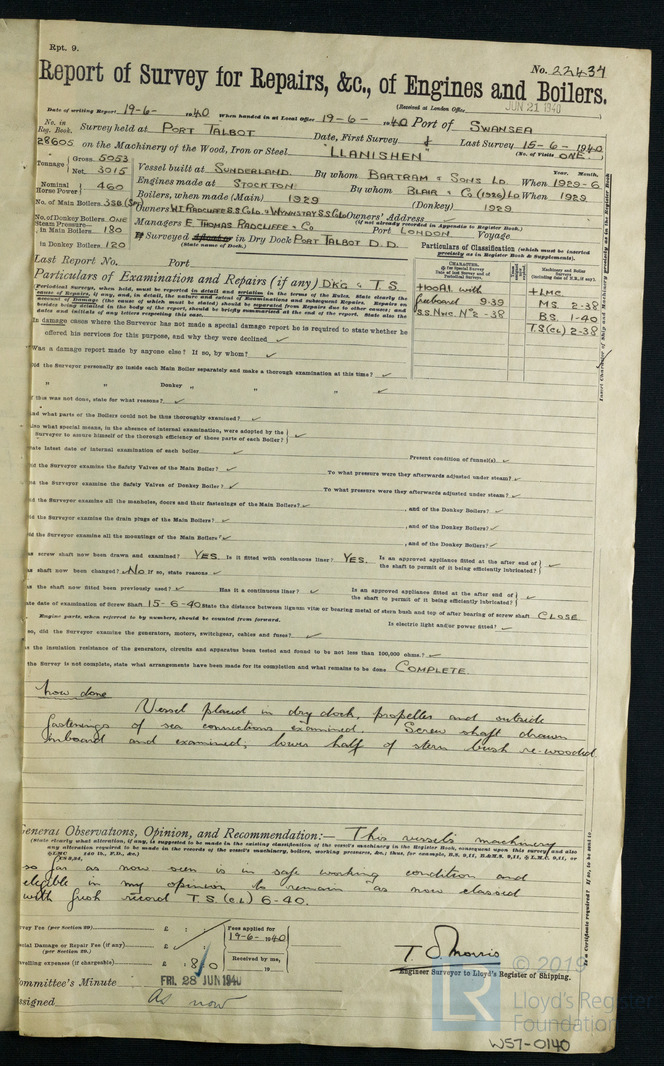 Rpt. 9.
No. 22437
Report of Survey for Repairs, &c., of Engines and Boilers.
(Received at London Office JUN 21 1940
Date of writing Report 19-6- 1940 When handed in at Local Office 19-6- 1940 Port of SWANSEA
No. in Reg. Book. Survey held at PORT TALBOT Date, First Survey & Last Survey 15-6-1940
(No. of Visits ONE.)
28605 on the Machinery of the Wood, Iron or Steel "LLANISHEN"
Tonnage Gross 5053
Net 3015
Vessel built at SUNDERLAND. By whom BARTRAM & SONS LD. When 1929-6
Year. Month.
Nominal Horse Power 460
Engines made at STOCKTON By whom BLAIR & Co (1926) LD When 1929
No. of Main Boilers 3SB (Spr) Boilers, when made (Main) 1929 (Donkey) 1929
No. of Donkey Boilers ONE
Owners W.I. RADCLIFFE S.S. Co LD & WYNNSTAY S.S. Co LD Owners' Address
(if not already recorded in Appendix to Register Book.)
Steam Pressure in Main Boilers 180
Managers E. THOMAS RADCLIFFE & Co Port LONDON Voyage
in Donkey Boilers 120
If Surveyed Afloat or in Dry Dock PORT TALBOT D.D.
(State name of Dock.)
Particulars of Classification (which must be inserted precisely as in Register Book & Supplements).
Last Report No. Port
Particulars of Examination and Repairs (if any) DKG & T.S
CHARACTER.
+100A1 with
freeboard 9-39
S.S. Nwc. No 2 -38
Machinery and Boiler Surveys
+LMC
MS 2-38
B.S. 1-40
T.S (CL) 2-38
In damage cases where the Surveyor has not made a special damage report he is required to state whether he
offered his services for this purpose, and why they were declined
Was a damage report made by anyone else? If so, by whom?
Did the Surveyor personally go inside each Main Boiler separately and make a thorough examination at this time?
" " Donkey " " "
If this was not done, state for what reasons?
And what parts of the Boilers could not be thus thoroughly examined?
Also what special means, in the absence of internal examination, were adopted by the
Surveyor to assure himself of the thorough efficiency of those parts of each Boiler?
State latest date of internal examination of each boiler Present condition of funnel(s)
Did the Surveyor examine the Safety Valves of the Main Boiler? To what pressure were they afterwards adjusted under steam?
Did the Surveyor examine the Safety Valves of Donkey Boiler? To what pressure were they afterwards adjusted under steam?
Did the Surveyor examine all the manholes, doors and their fastenings of the Main Boilers? , and of the Donkey Boilers?
Did the Surveyor examine the drain plugs of the Main Boilers? , and of the Donkey Boilers?
Did the Surveyor examine all the mountings of the Main Boilers? , and of the Donkey Boilers?
Has screw shaft now been drawn and examined? YES. Is it fitted with continuous liner? YES. Is an approved appliance fitted at the after end of the shaft to permit of it being efficiently lubricated?
Has shaft now been changed? NO If so, state reasons
Has the shaft now fitted been previously used? Has it a continuous liner? Is an approved appliance fitted at the after end of the shaft to permit of it being efficiently lubricated?
State date of examination of Screw Shaft 15-6-40 State the distance between lignum vitæ or bearing metal of stern bush and top of after bearing of screw shaft CLOSE
Engine parts, when referred to by numbers, should be counted from forward. Is electric light and/or power fitted?
If so, did the Surveyor examine the generators, motors, switchgear, cables and fuses?
Has the insulation resistance of the generators, circuits and apparatus been tested and found to be not less than 100,000 ohms?
If the Survey is not complete, state what arrangements have been made for its completion and what remains to be done COMPLETE.
Now done
Vessel placed in dry dock, propeller and outside
fastenings of sea connections examined. Screw shaft drawn
inboard and examined, lower half of stern bush re-wooded
General Observations, Opinion, and Recommendation:— This vessel's machinery
so far as now seen is in safe working condition and
eligible in my opinion to remain as now classed
with fresh record T.S. (CL) 6-40.
Survey Fee (per Section 29) £ : :
Fees applied for 19-6-1940
Special Damage or Repair Fee (if any) (per Section 29.) £ : :
Received by me, 19
Travelling expenses (if chargeable) £ : 8/0
T. S. Morris
Engineer Surveyor to Lloyd's Register of Shipping.
Committee's Minute FRI. 28 JUN 1940
Assigned As now
© 2019
LR
Lloyd's Register
Foundation
W57-0140